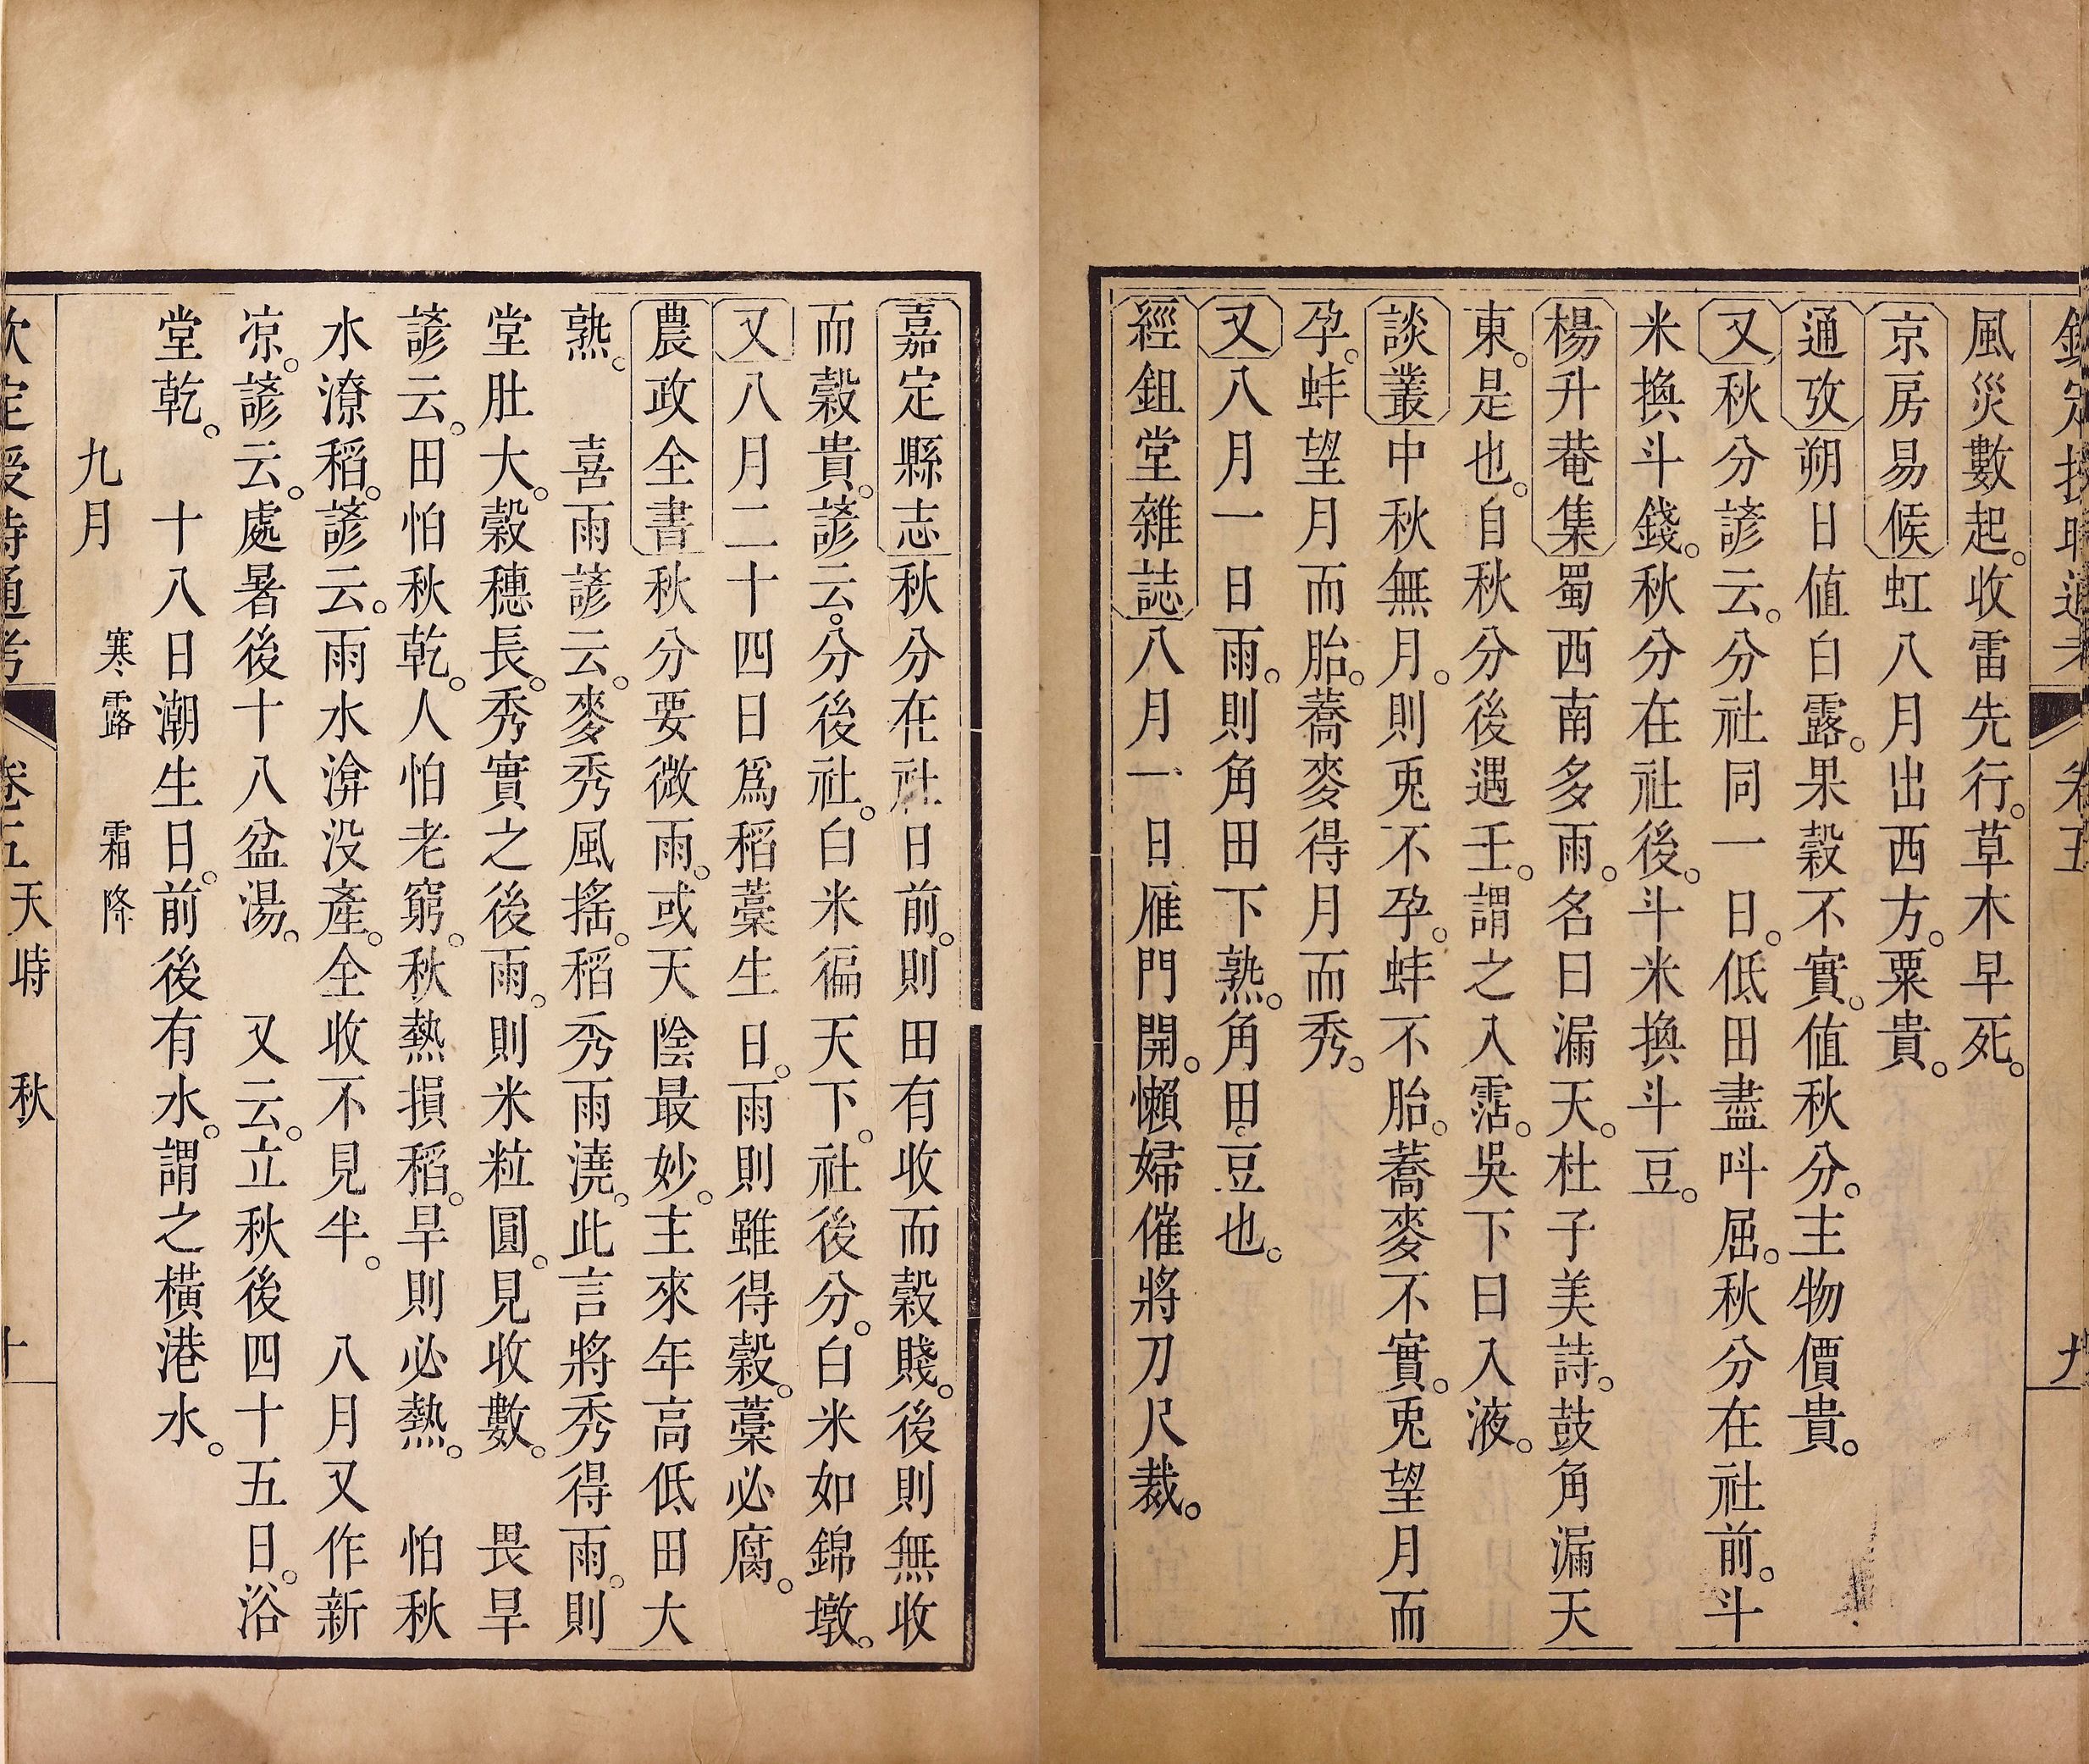 欽定授時通考 卷五 九
風災數起。收雷先行。草木早死。
京房易候虹八月出西方。粟貴。
通攷朔日值白露。果穀不實。值秋分。主物價貴。
又秋分諺云。分社同一日。低田盡呌屈。秋分在社前。斗
米換斗錢。秋分在社後。斗米換斗豆。
楊升菴集蜀西南多雨。名曰漏天。杜子美詩。鼓角漏天
東。是也。自秋分後遇壬。謂之入霑。吳下曰入液。
談叢中秋無月。則兎不孕。蚌不胎。蕎麥不實。兎望月而
孕。蚌望月而胎。蕎麥得月而秀。
又八月一日雨。則角田下熟。角田。豆也。
經鉏堂雜誌八月一日雁門開。懶婦催將刀尺裁。
嘉定縣志秋分在社日前。則田有收而穀賤。後則無收
而穀貴。諺云。分後社。白米徧天下。社後分。白米如錦墩。
又八月二十四日爲稻藁生日。雨則雖得穀。藁必腐。
農政全書秋分要微雨。或天陰最妙。主來年高低田大
熟。 喜雨諺云。麥秀風搖。稻秀雨澆。此言將秀得雨。則
堂肚大。穀穗長。秀實之後雨。則米粒圓。見收數。 畏旱
諺云。田怕秋乾。人怕老窮。秋熱損稻。旱則必熱。 怕秋
水潦稻。諺云。雨水渰没產。全收不見半。 八月又作新
凉。諺云。處暑後十八盆湯。 又云。立秋後四十五日。浴
堂乾。 十八日潮生日。前後有水。謂之橫港水。
九月 寒露 霜降
欽定授時通考 卷五 天時 秋 十